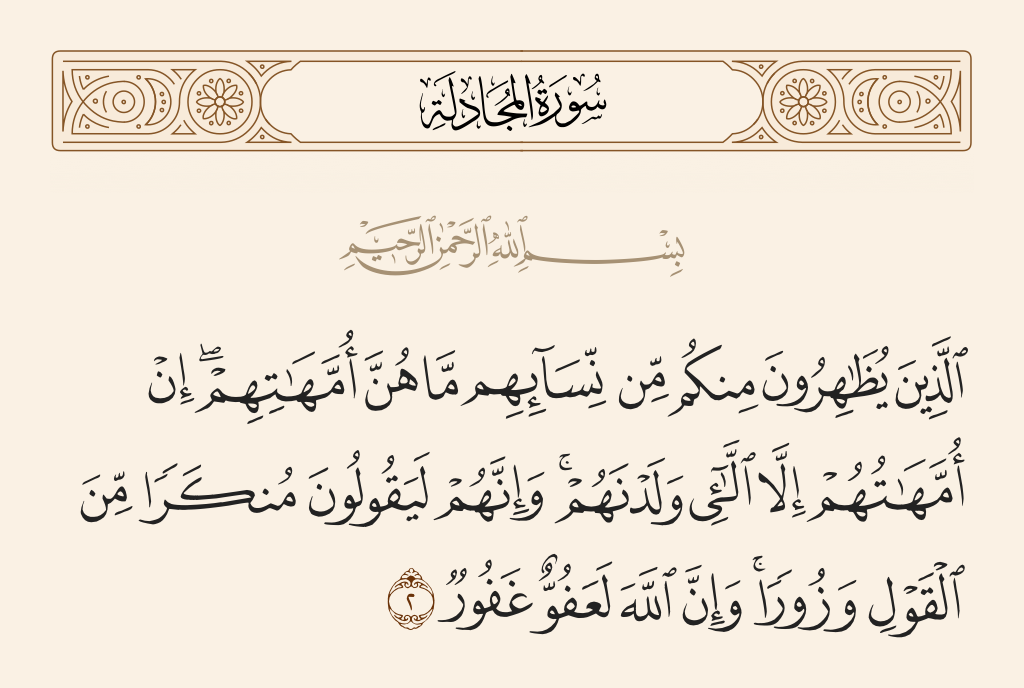 سُورَةُ المُجَادلَةِ
بِسْمِ ٱللَّهِ ٱلرَّحْمَٰنِ ٱلرَّحِيمِ
ٱلَّذِينَ يُظَٰهِرُونَ مِنكُم مِّن نِّسَآئِهِم مَّا هُنَّ أُمَّهَٰتِهِمْ ۖ إِنْ
أُمَّهَٰتُهُمْ إِلَّا ٱلَّٰٓـِٔى وَلَدْنَهُمْ ۚ وَإِنَّهُمْ لَيَقُولُونَ مُنكَرًا مِّنَ
ٱلْقَوْلِ وَزُورًا ۚ وَإِنَّ ٱللَّهَ لَعَفُوٌّ غَفُورٌ ٢